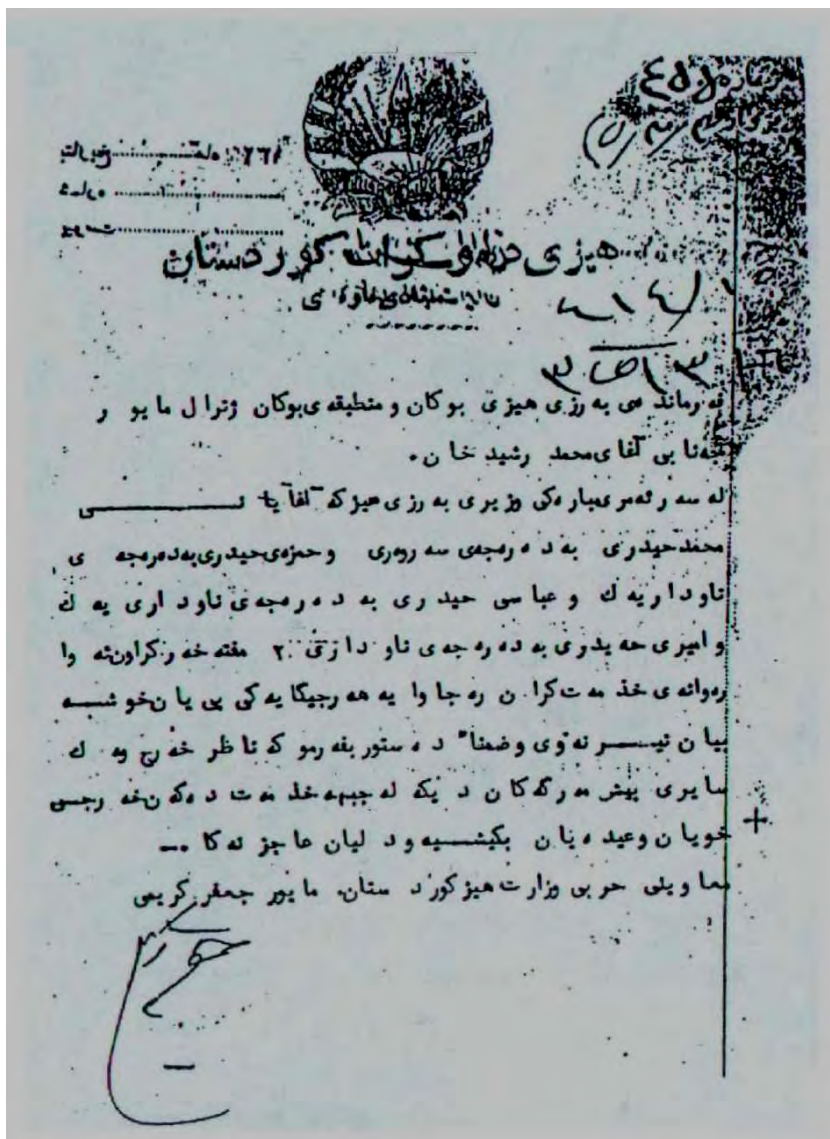 بتاریخ ماه ١٣٢
شماره
پیوست
هیزی دیموکرات کوردستان
فه رماند هی به رزی هیزی بوکان و منطبقه ی بوکان ژنرال مایو ر
جه نابی آغای محمد رشید خان.
له سه ر ئه مری مباره کی وزیری به رزی هیز که آغایا نـــی
محمد حیدری به د ه ره جه ی سه روه ری و حمزه ی حیدری به ده ره جه ی
ناود اریه ك و عباسی حید ری به د ه ره جه ی ناود اری یه ك
و امیری حه یدری به ده ره جه ی ناو داری ٢ مفته خه ر کراون ئه وا
ره وانه ی خذ مه ت کران ره جا وا یه هه ر جیگا یه کی پی یان خو شـــه
بیا ن نیـــر نه وی وضمناً د ه ستور بفه رمو که نا ظر خه رج وه ك
سایری پیش مه رگه کان د یکه له جبهه خذ مه ت ده که ن خه رجـی
خویا ن وعیده یان بکیشـــه و د لیان عاجز نه کا ــ
معا وینی حربی وزارت هیز کورد ستان. مایور جعفر کریمی